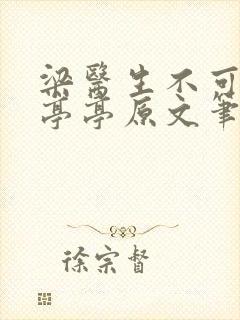 梁醫生不可
亭亭原文筆
徐宗督